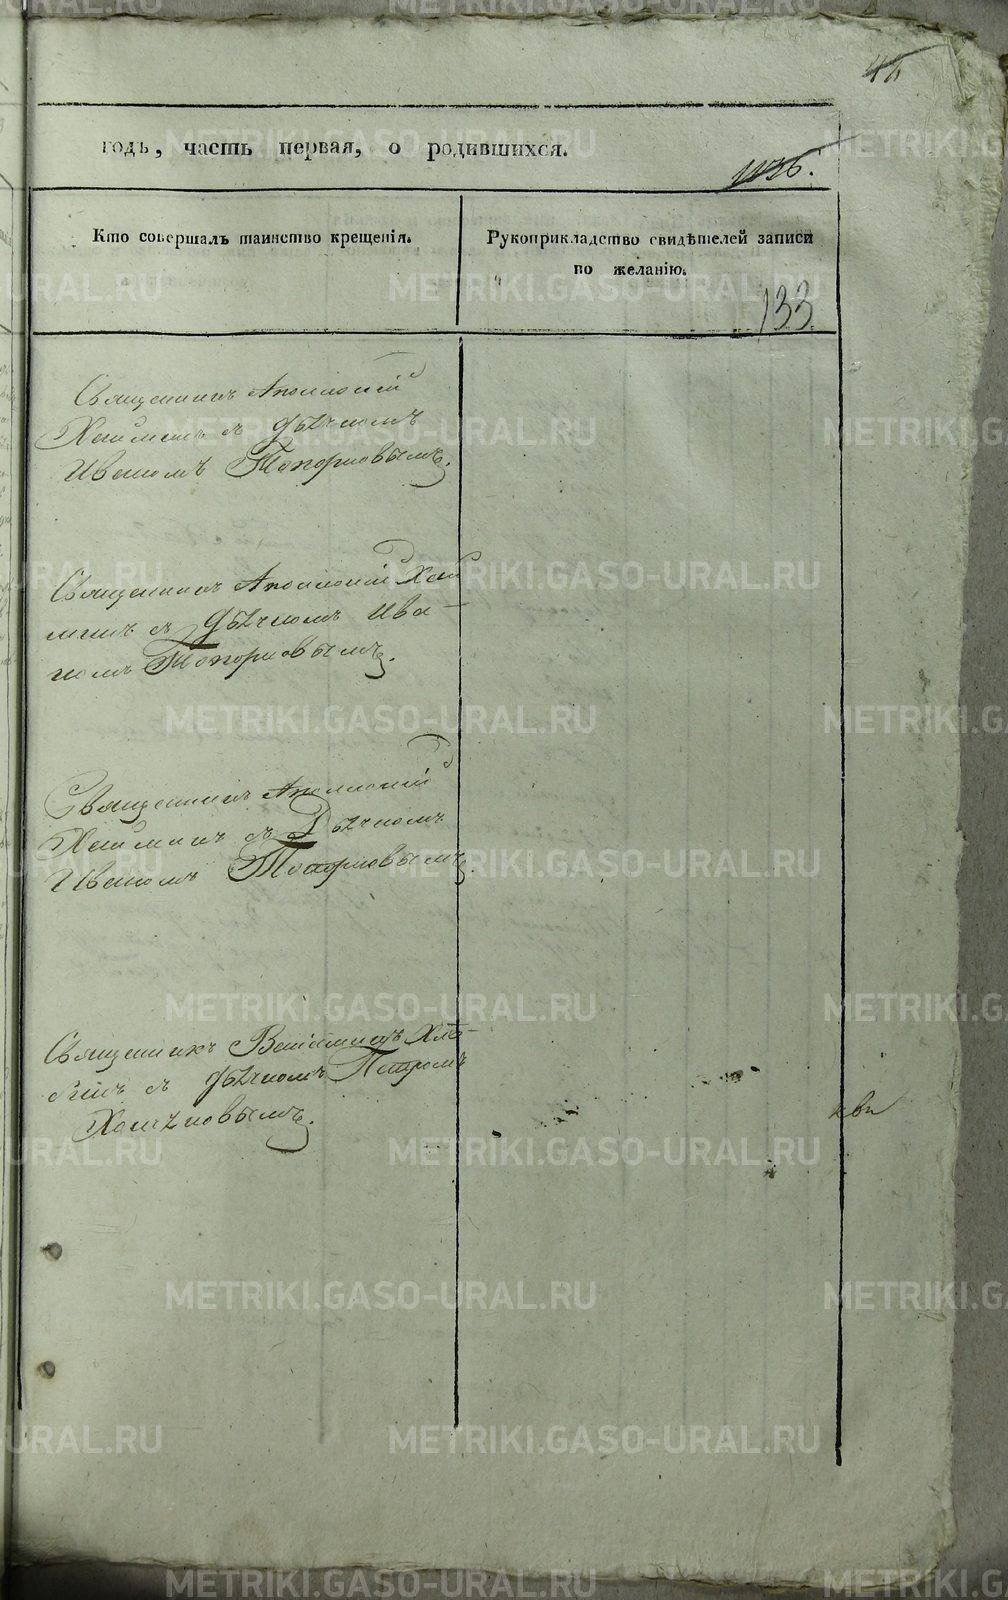 46
годъ, часть первая, о родившихся.
1136.
Кто совершалъ таинство крещенія.
Рукоприкладство свидѣтелей записи
по желанію.
133
Священникъ Аполлоній
с дьячкомъ
Иваномъ Топорковымъ.
Священникъ Аполлоній
с дьячкомъ Ива-
номъ Топорковымъ.
Священникъ Аполлоній
с Дьячкомъ
Иваномъ Топорковымъ.
Священникъ Веніаминъ Хлѣ-
бинъ с дьячкомъ Петромъ
METRIKI.GASO-URAL.RU